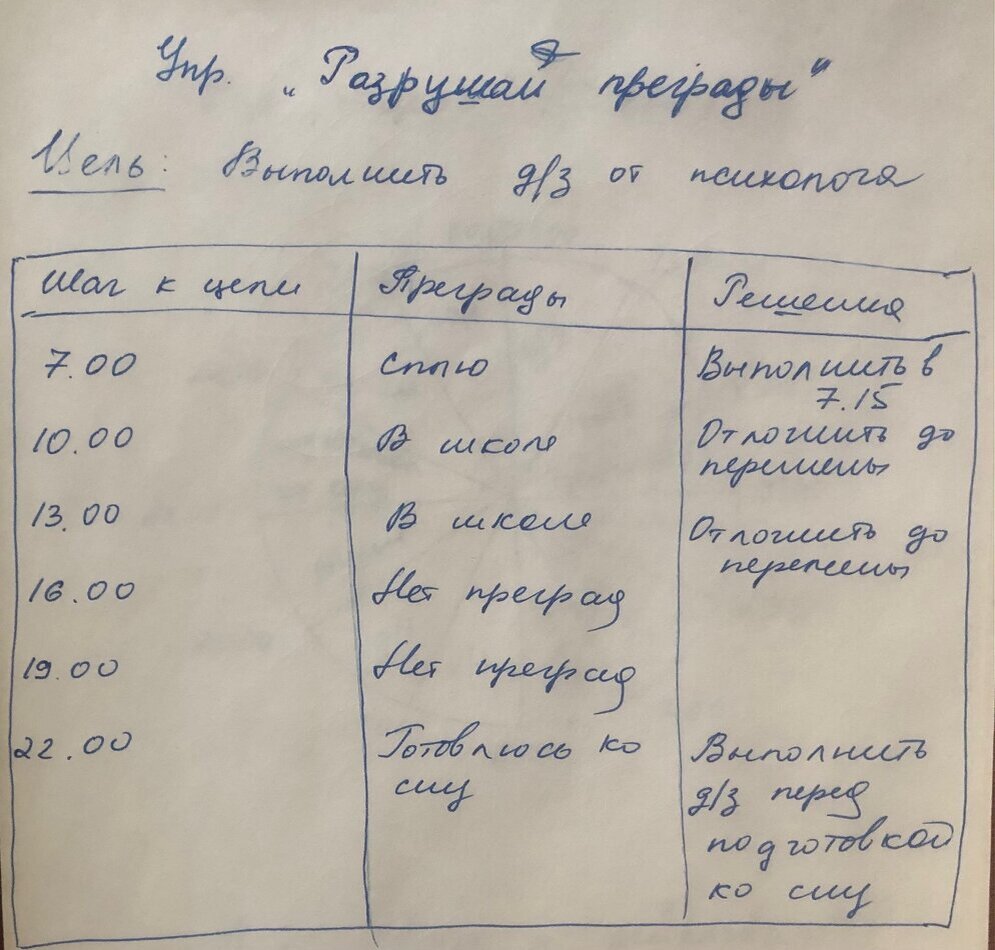 Упр. „Разрушай преграды"
Цель: Выполнить д/з от психолога
Шаг к цели Преграды Решения
7.00 Сплю Выполнить в
7.15
10.00 В школе Отложить до
перемены
13.00 В школе Отложить до
перемены
16.00 Нет преград
19.00 Нет преград
22.00 Готовлюсь ко Выполнить
сну д/з перед
подготовкой
ко сну